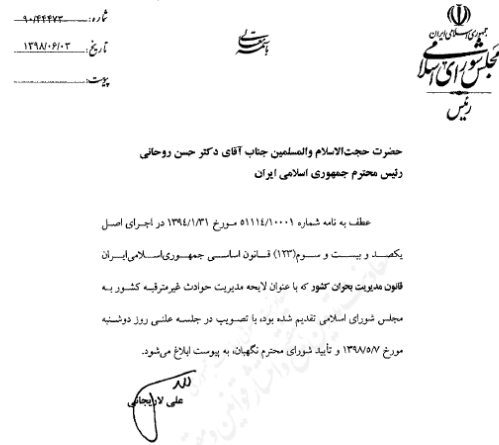 جمهوری اسلامی ایران
مجلس شورای اسلامی
رئیس
باسمه تعالی
شماره: ۹۰/۴۴۴۷۳
تاریخ: ۱۳۹۸/۰۶/۰۳
پیوست:
حضرت حجت‌الاسلام والمسلمین جناب آقای دکتر حسن روحانی
رئیس محترم جمهوری اسلامی ایران
عطف به نامه شماره ۵۱۱۱٤/۱۰۰۰۱ مورخ ۱۳۹٤/۱/۳۱ در اجرای اصل
یکصد و بیست و سوم(۱۲۳) قانون اساسی جمهوری‌اسلامی‌ایران
قانون مدیریت بحران کشور که با عنوان لایحه مدیریت حوادث غیرمترقبه کشور به
مجلس شورای اسلامی تقدیم شده بود، با تصویب در جلسه علنی روز دوشنبه
مورخ ۱۳۹۸/۵/۷ و تأیید شورای محترم نگهبان، به پیوست ابلاغ می‌شود.
علی لاریجانی